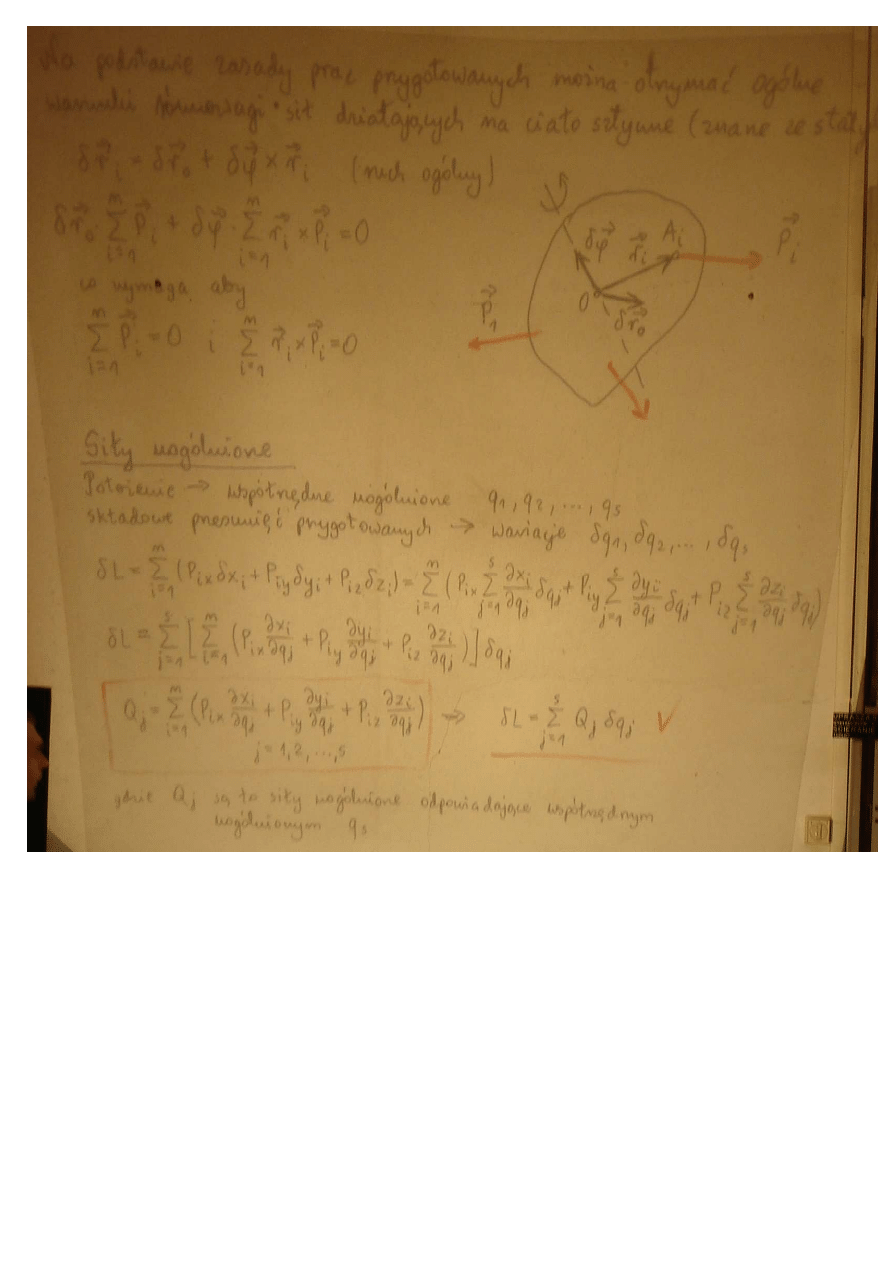 Na podstawie zasady prac przygotowanych można otrzymać ogólne
warunki równowagi sił działających na ciało sztywne (znane ze staty
δr⃗ᵢ = δr⃗₀ + δφ⃗ × r⃗ᵢ (ruch ogólny)
δr⃗₀ · Σᵢ₌₁ⁿ P⃗ᵢ + δφ⃗ · Σᵢ₌₁ⁿ r⃗ᵢ × P⃗ᵢ = 0
co wymaga, aby
Σᵢ₌₁ⁿ P⃗ᵢ = 0 i Σᵢ₌₁ⁿ r⃗ᵢ × P⃗ᵢ = 0
δφ⃗ r⃗ᵢ Aᵢ P⃗ᵢ
P⃗₁ O δr⃗₀
Siły uogólnione
Położenie → współrzędne uogólnione q₁, q₂, ..., qₛ
składowe przesunięć przygotowanych → wariacje δq₁, δq₂, ..., δqₛ
δL = Σᵢ₌₁ⁿ (Pᵢₓ δxᵢ + Pᵢy δyᵢ + Pᵢz δzᵢ) = Σᵢ₌₁ⁿ (Pᵢₓ Σⱼ₌₁ˢ ∂xᵢ/∂qⱼ δqⱼ + Pᵢy Σⱼ₌₁ˢ ∂yᵢ/∂qⱼ δqⱼ + Pᵢz Σⱼ₌₁ˢ ∂zᵢ/∂qⱼ δqⱼ)
δL = Σⱼ₌₁ˢ [Σᵢ₌₁ⁿ (Pᵢₓ ∂xᵢ/∂qⱼ + Pᵢy ∂yᵢ/∂qⱼ + Pᵢz ∂zᵢ/∂qⱼ)] δqⱼ
Qⱼ = Σᵢ₌₁ⁿ (Pᵢₓ ∂xᵢ/∂qⱼ + Pᵢy ∂yᵢ/∂qⱼ + Pᵢz ∂zᵢ/∂qⱼ) ⇒ δL = Σⱼ₌₁ˢ Qⱼ δqⱼ ✓
j = 1,2, ...,s
gdzie Qⱼ są to siły uogólnione odpowiadające współrzędnym
uogólnionym qₛ